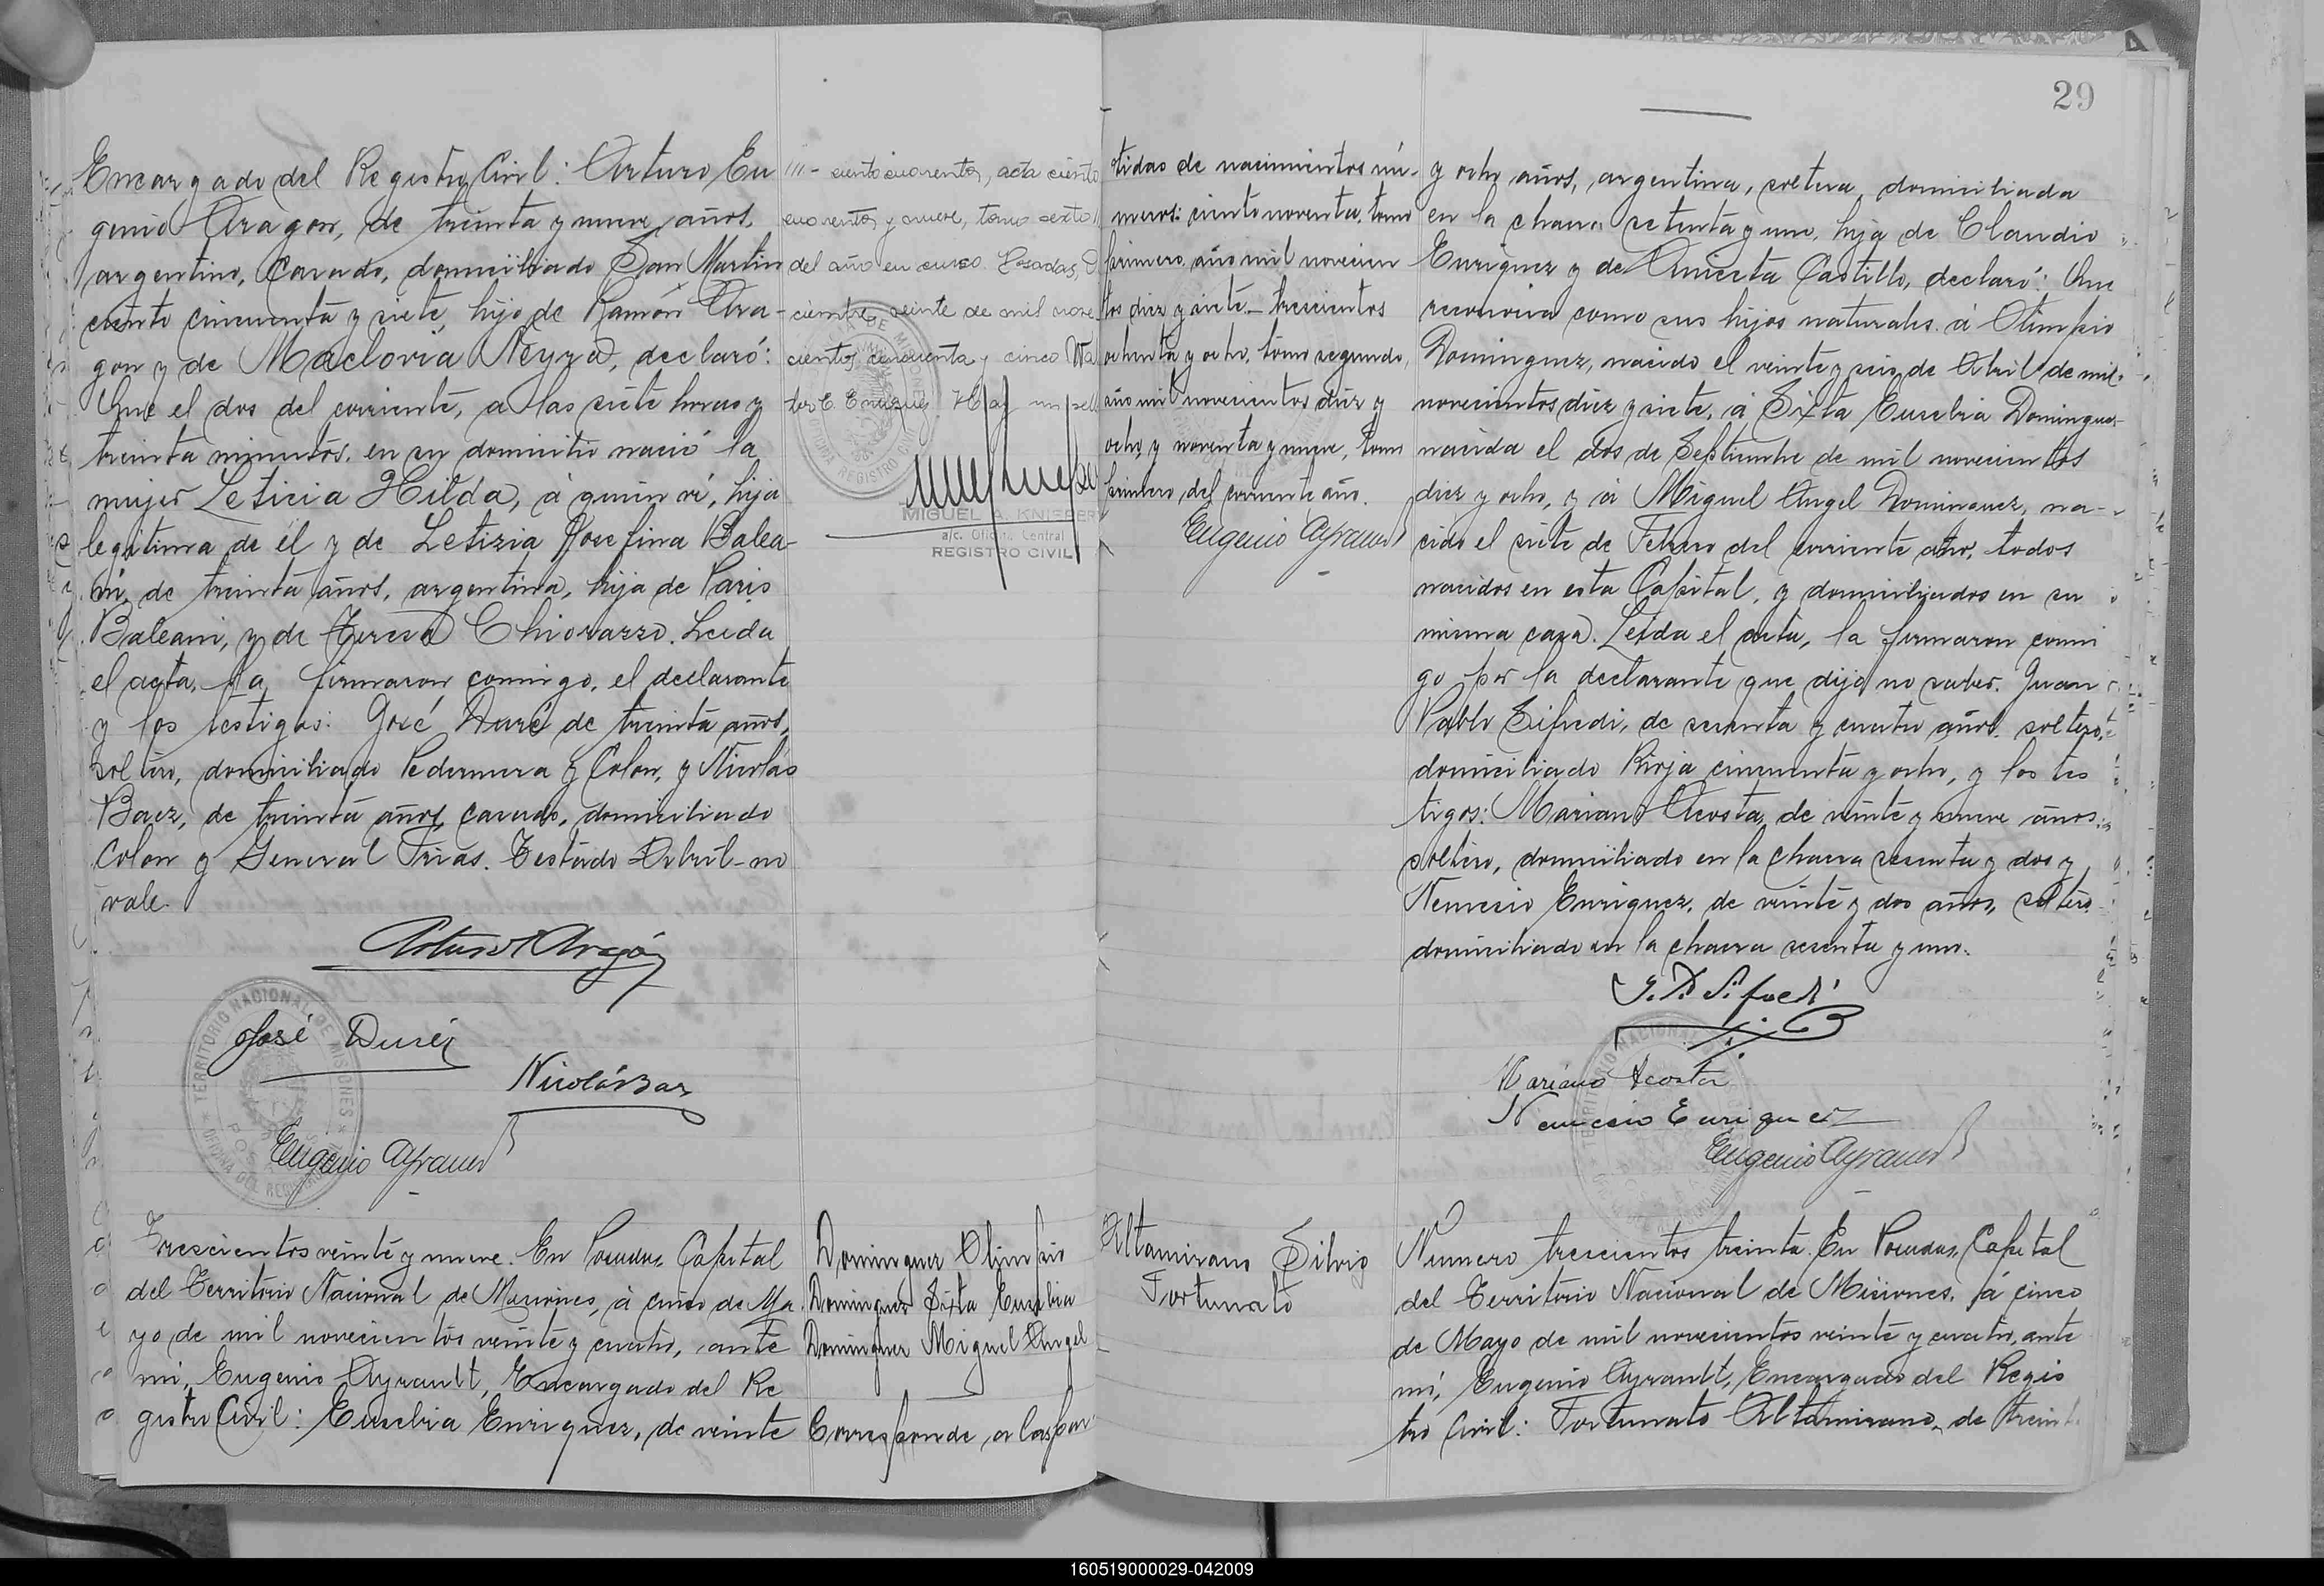 29
Encargado del Registro Civil: Arturo Eu
genio Aragon, de treinta y nueve años,
argentino, casado, domiciliado San Martin
ciento cincuenta y siete, hijo de Ramón Ara-
gon y de Maclovia Neyra, declaró:
Que el dos del corriente, a las siete horas y
treinta minutos, en su domicilio nació la
mujer Leticia Hilda, á quien ví, hija
legitima de él y de Letizia Josefina Balea-
ni, de treinta años, argentina, hija de Paris
Baleani, y de Teresa Chiorazzo. Leida
el acta, la firmaron conmigo, el declarante
y los testigos: José Duré de treinta años,
soltero, domiciliado Pedernera y Colon, y Nicolás
Baez, de treinta años, casado, domiciliado
Colon y General Frias. Testado = Abril - no
vale.
Arturo E Aragón
José Duré
Nicolás Baez
TERRITORIO NACIONAL DE MISIONES
OFICINA DEL REGISTRO
Eugenio Ayrault
/// - ciento cuarenta, acta ciento
cuarenta y nueve, tomo sexto
del año en curso. Posadas, D
ciembre veinte de mil nove
cientos cincuenta y cinco Wa
ter E. Enriquez Hay un sell
MIGUEL A. KNIEPER
a/c. Oficina Central
REGISTRO CIVIL
Trescientos veinte y nueve. En Posadas, Capital
del Territorio Nacional de Misiones, á cinco de Ma
yo de mil novecientos veinte y cuatro, ante
mi, Eugenio Ayrault, Encargado del Re
gistro Civil: Eusebia Enriquez, de veinte
Dominguez Olimpio
Dominguez Sixta Eusebia
Dominguez Miguel Angel
Corresponde a las par
tidas de nacimientos nú-
meros: ciento noventa, tomo
primero, año mil novecien
tos diez y siete - trescientos
ochenta y ocho, tomo segundo,
año mil novecientos diez y
ocho, y noventa y nueve, tomo
primero del corriente año.
Eugenio Ayrault
y ocho años, argentina, soltera, domiciliada
en la chacra setenta y uno, hija de Claudio
Enriquez y de Aniceta Castillo, declaró: Que
reconocia como sus hijos naturales á Olimpio
Dominguez, nacido el veinte y seis de Abril de mil
novecientos diez y siete, á Sixta Eusebia Dominguez
nacida el dos de Septiembre de mil novecientos
diez y ocho, y á Miguel Angel Dominguez, na-
cido el siete de Febrero del corriente año, todos
nacidos en esta Capital, y domiciliados en su
misma casa. Leida el acta, la firmaron conmi
go por la declarante que dijo no saber. Juan
Pablo Sifredi, de sesenta y cuatro años, soltero,
domiciliado Rioja cincuenta y ocho, y los tes
tigos: Mariano Acosta, de veinte y nueve años,
soltero, domiciliado en la chacra sesenta y dos y
Nemesio Enriquez, de veinte y dos años, soltero
domiciliado en la chacra sesenta y uno.
J. P. Sifredi
Mariano Acosta
Nemesio Enriquez
Eugenio Ayrault
Altamirano Silvio
Fortunato
Numero trescientos treinta. En Posadas, Capital
del Territorio Nacional de Misiones, á cinco
de Mayo de mil novecientos veinte y cuatro, ante
mí, Eugenio Ayrault, Encargado del Regis
tro Civil: Fortunato Altamirano, de treinta
160519000029-042009